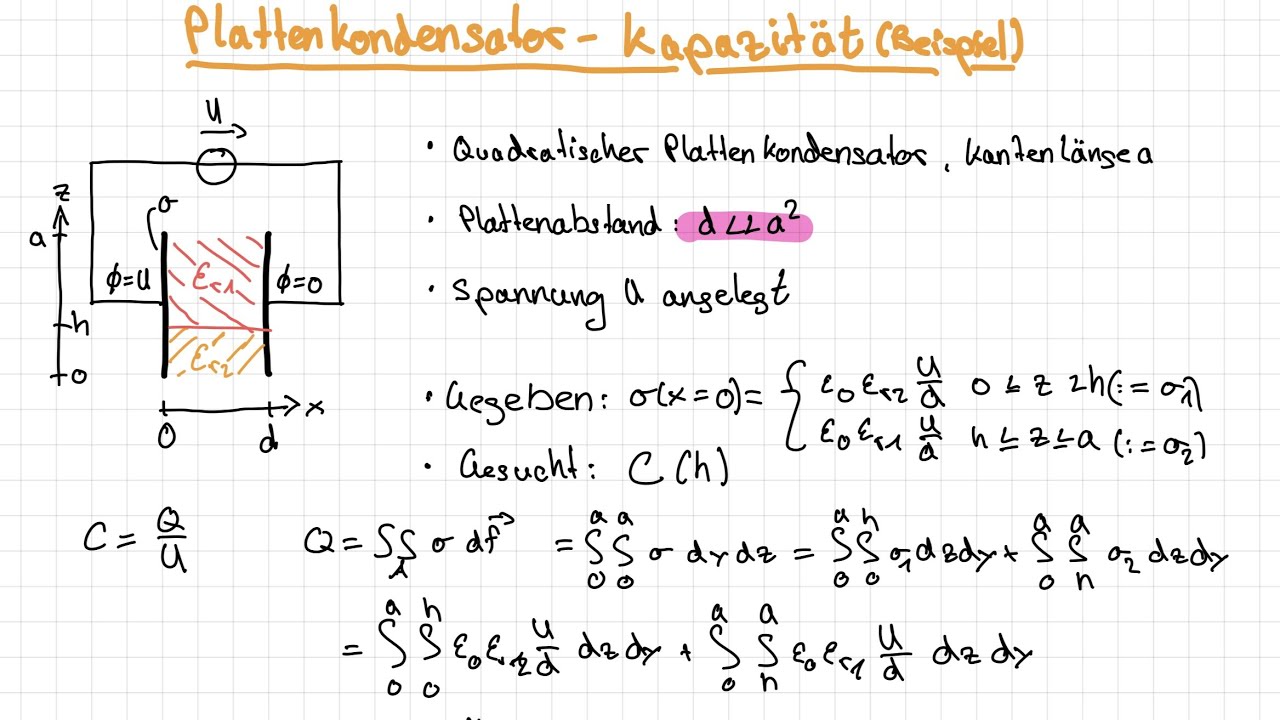 Plattenkondensator - Kapazität (Beispiel)
U
z
σ
a
Φ=U
εr1
Φ=0
h
εr2
0
x
0
d
• Quadratischer Plattenkondensator, Kantenlänge a
• Plattenabstand: d << a²
• Spannung U angelegt
• Gegeben: σ(x=0)= { ε₀ εr2 U/d 0 ≤ z < h (:= σ₁)
ε₀ εr1 U/d h ≤ z ≤ a (:= σ₂)
• Gesucht: C(h)
C = Q/U Q = ∫∫_A σ df⃗ = ∫₀ᵃ ∫₀ᵃ σ dy dz = ∫₀ᵃ ∫₀ʰ σ₁ dz dy + ∫₀ᵃ ∫ₕᵃ σ₂ dz dy
= ∫₀ᵃ ∫₀ʰ ε₀ εr2 U/d dz dy + ∫₀ᵃ ∫ₕᵃ ε₀ εr1 U/d dz dy